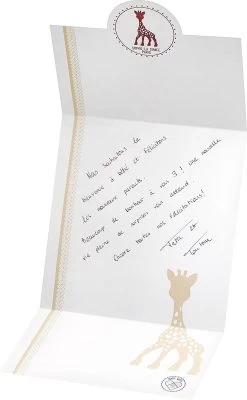 SOPHIE LA GIRAFE
PARIS
Nous souhaitons la
bienvenue à bébé et félicitons
les nouveaux parents.
Beaucoup de bonheur à vous 3 ! Une nouvelle
vie pleine de surprises vous attend
Encore toutes nos félicitations!
et